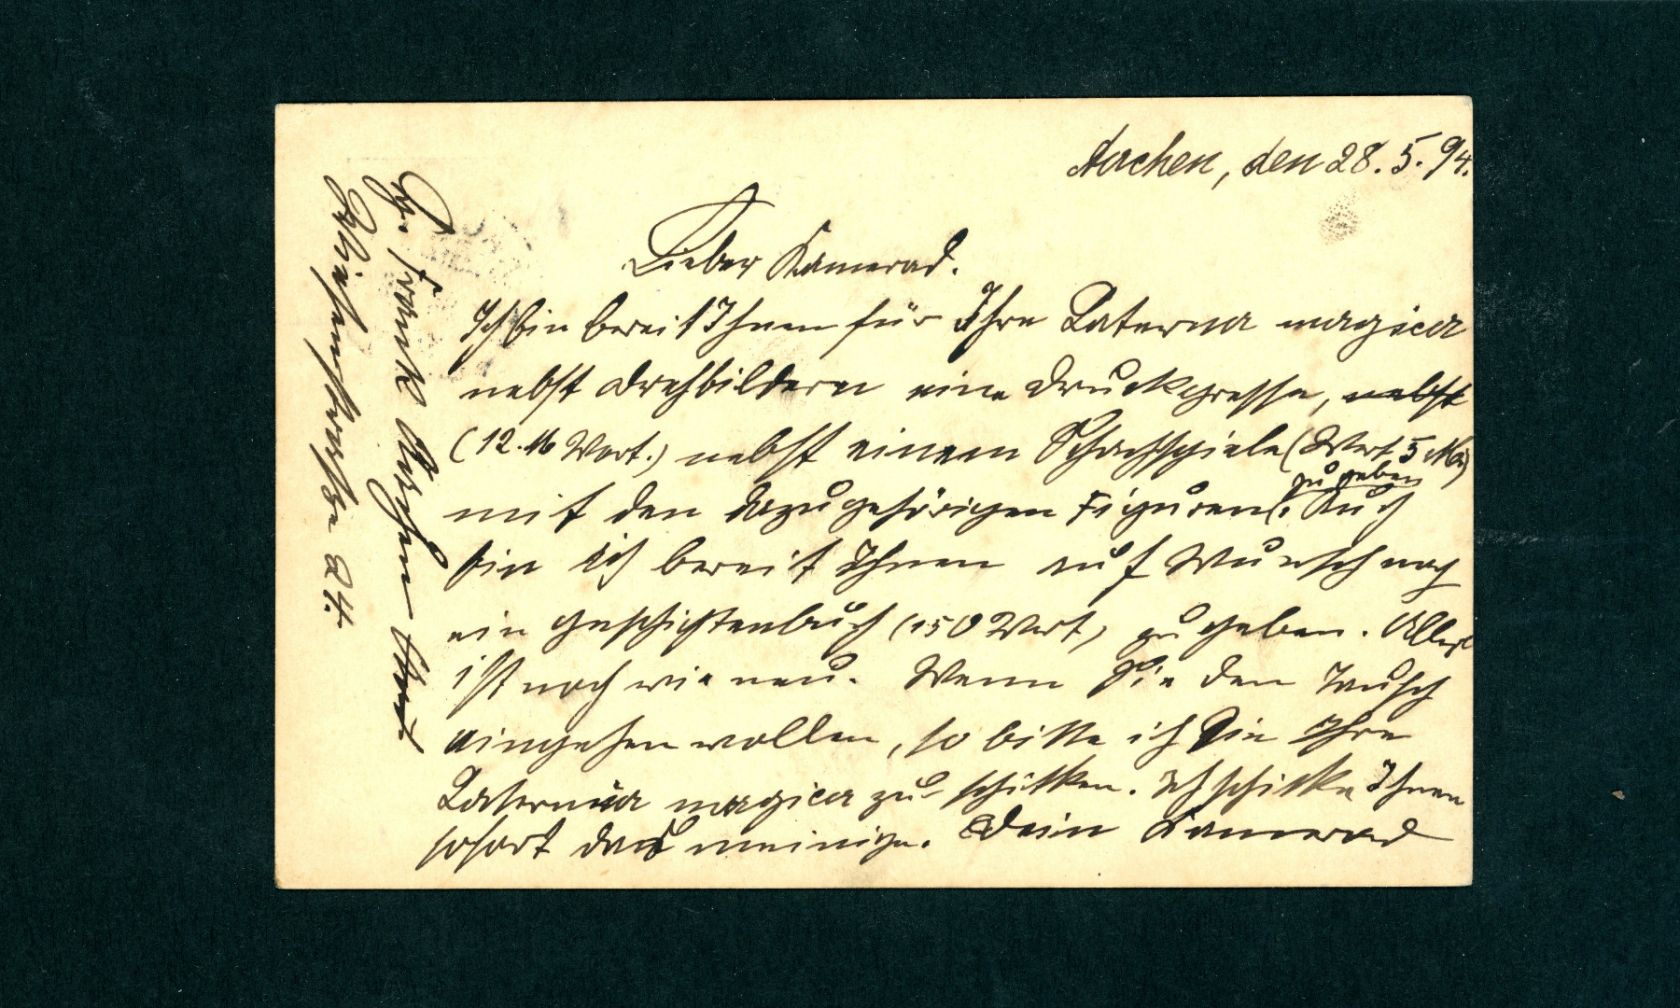 Aachen, den 28. 5. 94.
Lieber Kamerad.
Ich bin bereit Ihnen für Ihre Laterna magica
nebst Drehbildern eine Druckpresse, nebst
(12. M Wert.) nebst einem Schachspiele (Wert 5 M.)
mit den dazugehörigen Figuren zu geben. Auch
bin ich bereit Ihnen auf Wunsch noch
ein Geschichtenbuch (150 Wert) zu geben. Alles
ist noch wie neu. Wenn Sie den Tausch
eingehen wollen, so bitte ich Sie Ihre
Laterna magica zu schicken. Ich schicke Ihnen
sofort das meinige. Dein Kamerad
Frank Aachen
24.